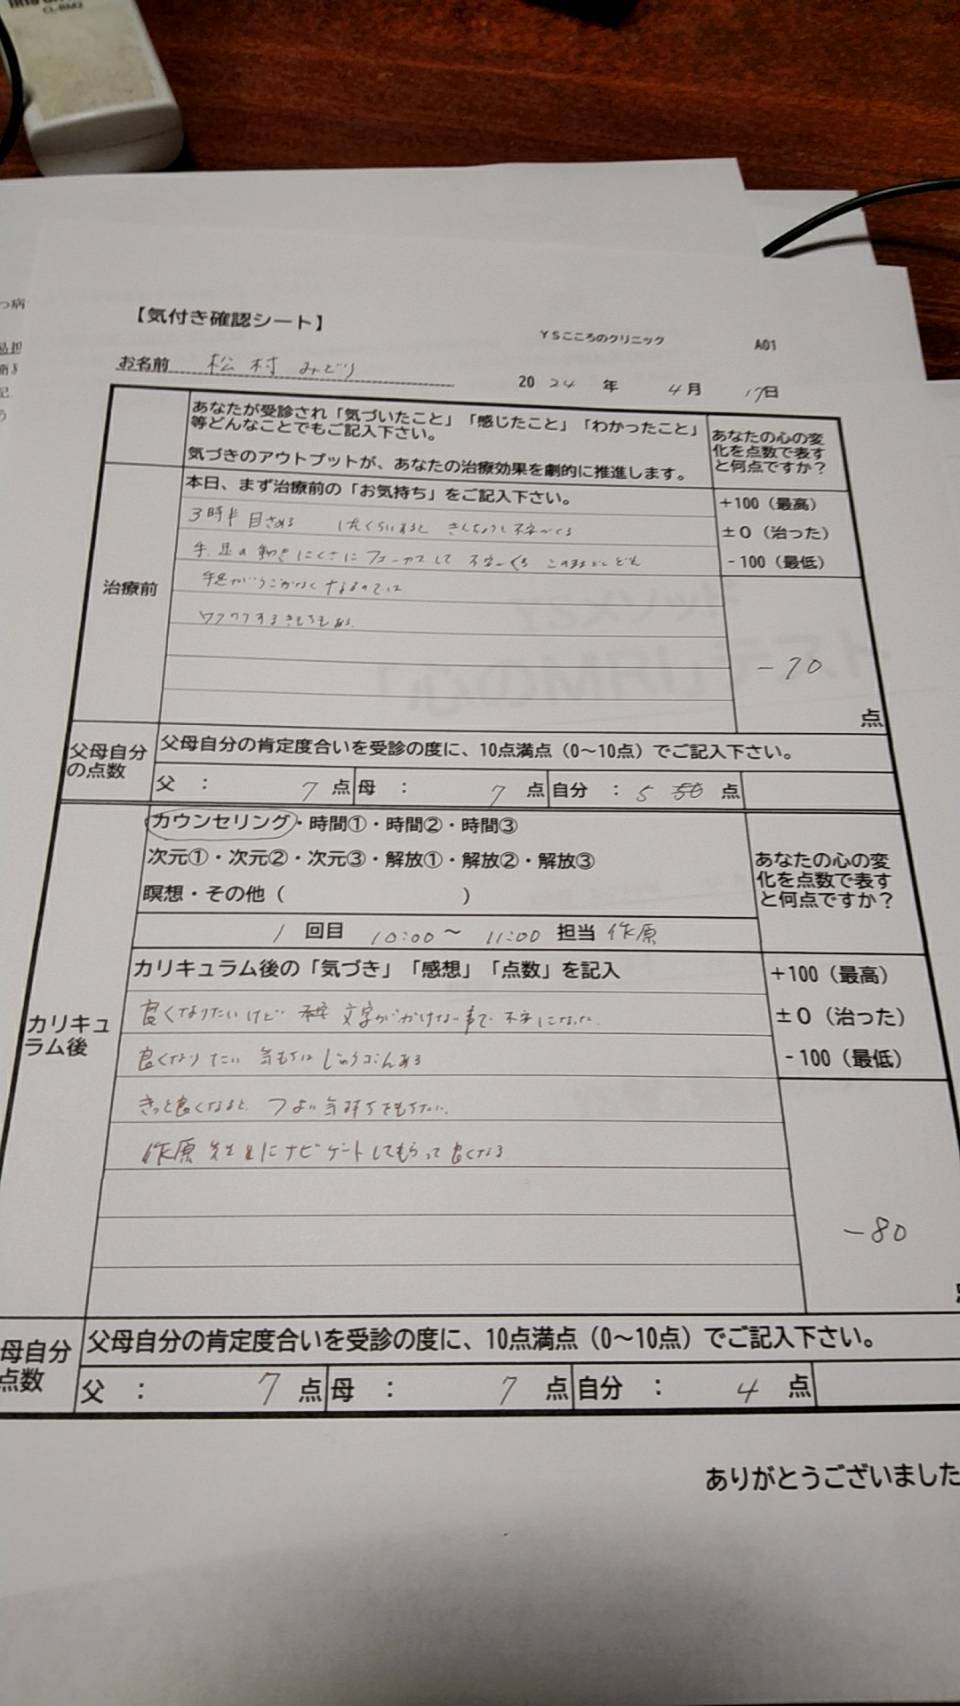 CL-BM2
【気付き確認シート】
YSこころのクリニック
A01
お名前 松村 みどり
2024年 4月 17日
あなたが受診され「気づいたこと」「感じたこと」「わかったこと」
等どんなことでもご記入下さい。
気づきのアウトプットが、あなたの治療効果を劇的に推進します。
あなたの心の変
化を点数で表す
と何点ですか？
治療前
本日、まず治療前の「お気持ち」をご記入下さい。
+100（最高）
±0（治った）
-100（最低）
3時半 目さめる
手、足の動きにくさにフォーカスして
手足がうごかなくなるのでは
ワクワクするきもちもある
-70
点
父母自分
の点数
父母自分の肯定度合いを受診の度に、10点満点（0～10点）でご記入下さい。
父 ： 7 点 母 ： 7 点 自分 ： 5 点
カリキュ
ラム後
カウンセリング・時間①・時間②・時間③
次元①・次元②・次元③・解放①・解放②・解放③
瞑想・その他（ ）
1 回目 10:00～ 11:00 担当 作原
あなたの心の変
化を点数で表す
と何点ですか？
カリキュラム後の「気づき」「感想」「点数」を記入
+100（最高）
±0（治った）
-100（最低）
良くなりたいけど 文字がかけない事で 不安になった
良くなりたい 気もちは じゅうぶんある
きっと良くなると つよい気持ちをもちたい
作原先生にナビゲートしてもらって良くなる
-80
母自分
点数
父母自分の肯定度合いを受診の度に、10点満点（0～10点）でご記入下さい。
父 ： 7 点 母 ： 7 点 自分 ： 4 点
ありがとうございました